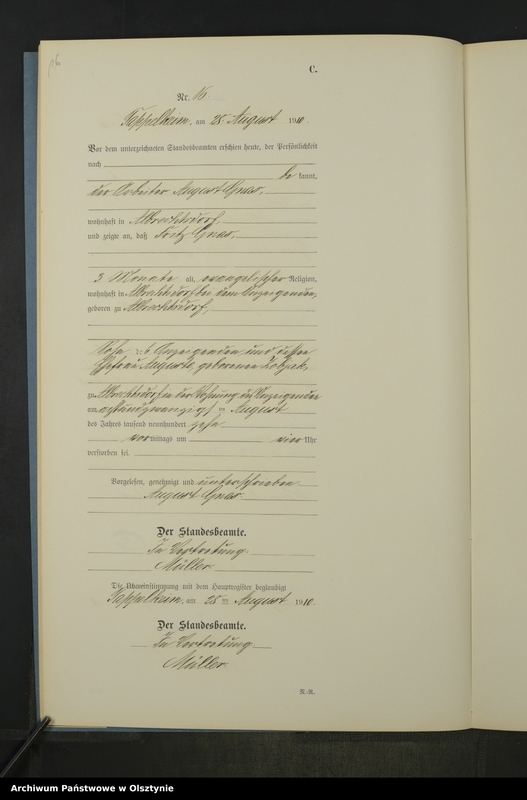 16
C.
Nr. 16
Tappelkeim, am 28. August 1910.
Vor dem unterzeichneten Standesbeamten erschien heute, der Persönlichkeit
nach
be kannt,
der Arbeiter August Gnas,
wohnhaft in Albrechtsdorf,
und zeigte an, daß Fritz Gnas,
3 Monate alt, evangelischer Religion,
wohnhaft in Albrechtsdorf bei dem Anzeigenden,
geboren zu Albrechtsdorf,
Sohn des Anzeigenden und dessen
Ehefrau Auguste, geborenen
zu Albrechtsdorf in der Wohnung des Anzeigenden
am achtundzwanzigsten August
des Jahres tausend neunhundert zehn
vormittags um vier Uhr
verstorben sei.
Vorgelesen, genehmigt und unterschrieben
August Gnas
Der Standesbeamte.
In Vertretung
Müller
Die Übereinstimmung mit dem Hauptregister beglaubigt
Tappelkeim, am 28. August 1910.
Der Standesbeamte.
In Vertretung
Müller
Archiwum Państwowe w Olsztynie